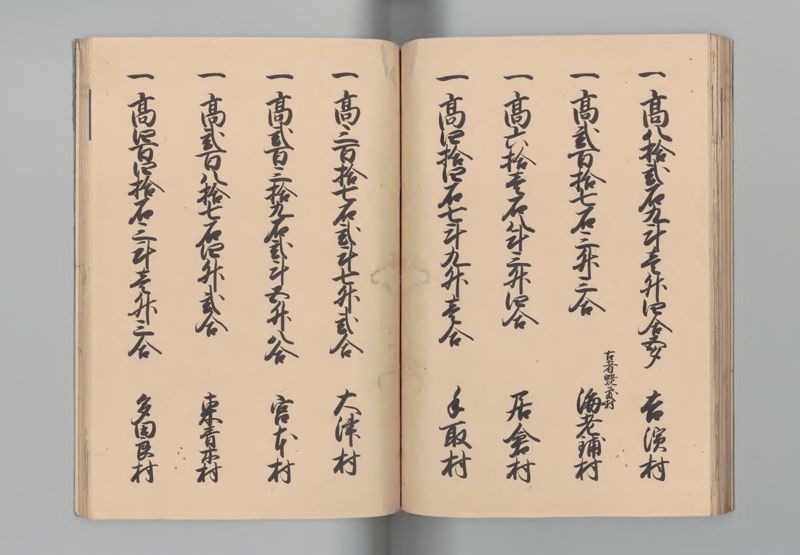 一 高八拾弐石九斗壱升四合余 古濱村
一 高弐百拾七石三升三合 海老鋪村
一 高六拾壱石八斗三升四合 居倉村
一 高四拾四石七斗九升壱合 手取村
一 高三百拾七石弐斗七升弐合 大津村
一 高弐百三拾九石弐斗五升八合 宮本村
一 高弐百八拾七石四升弐合 東青木村
一 高四百四拾石三斗壱升三合 多田良村